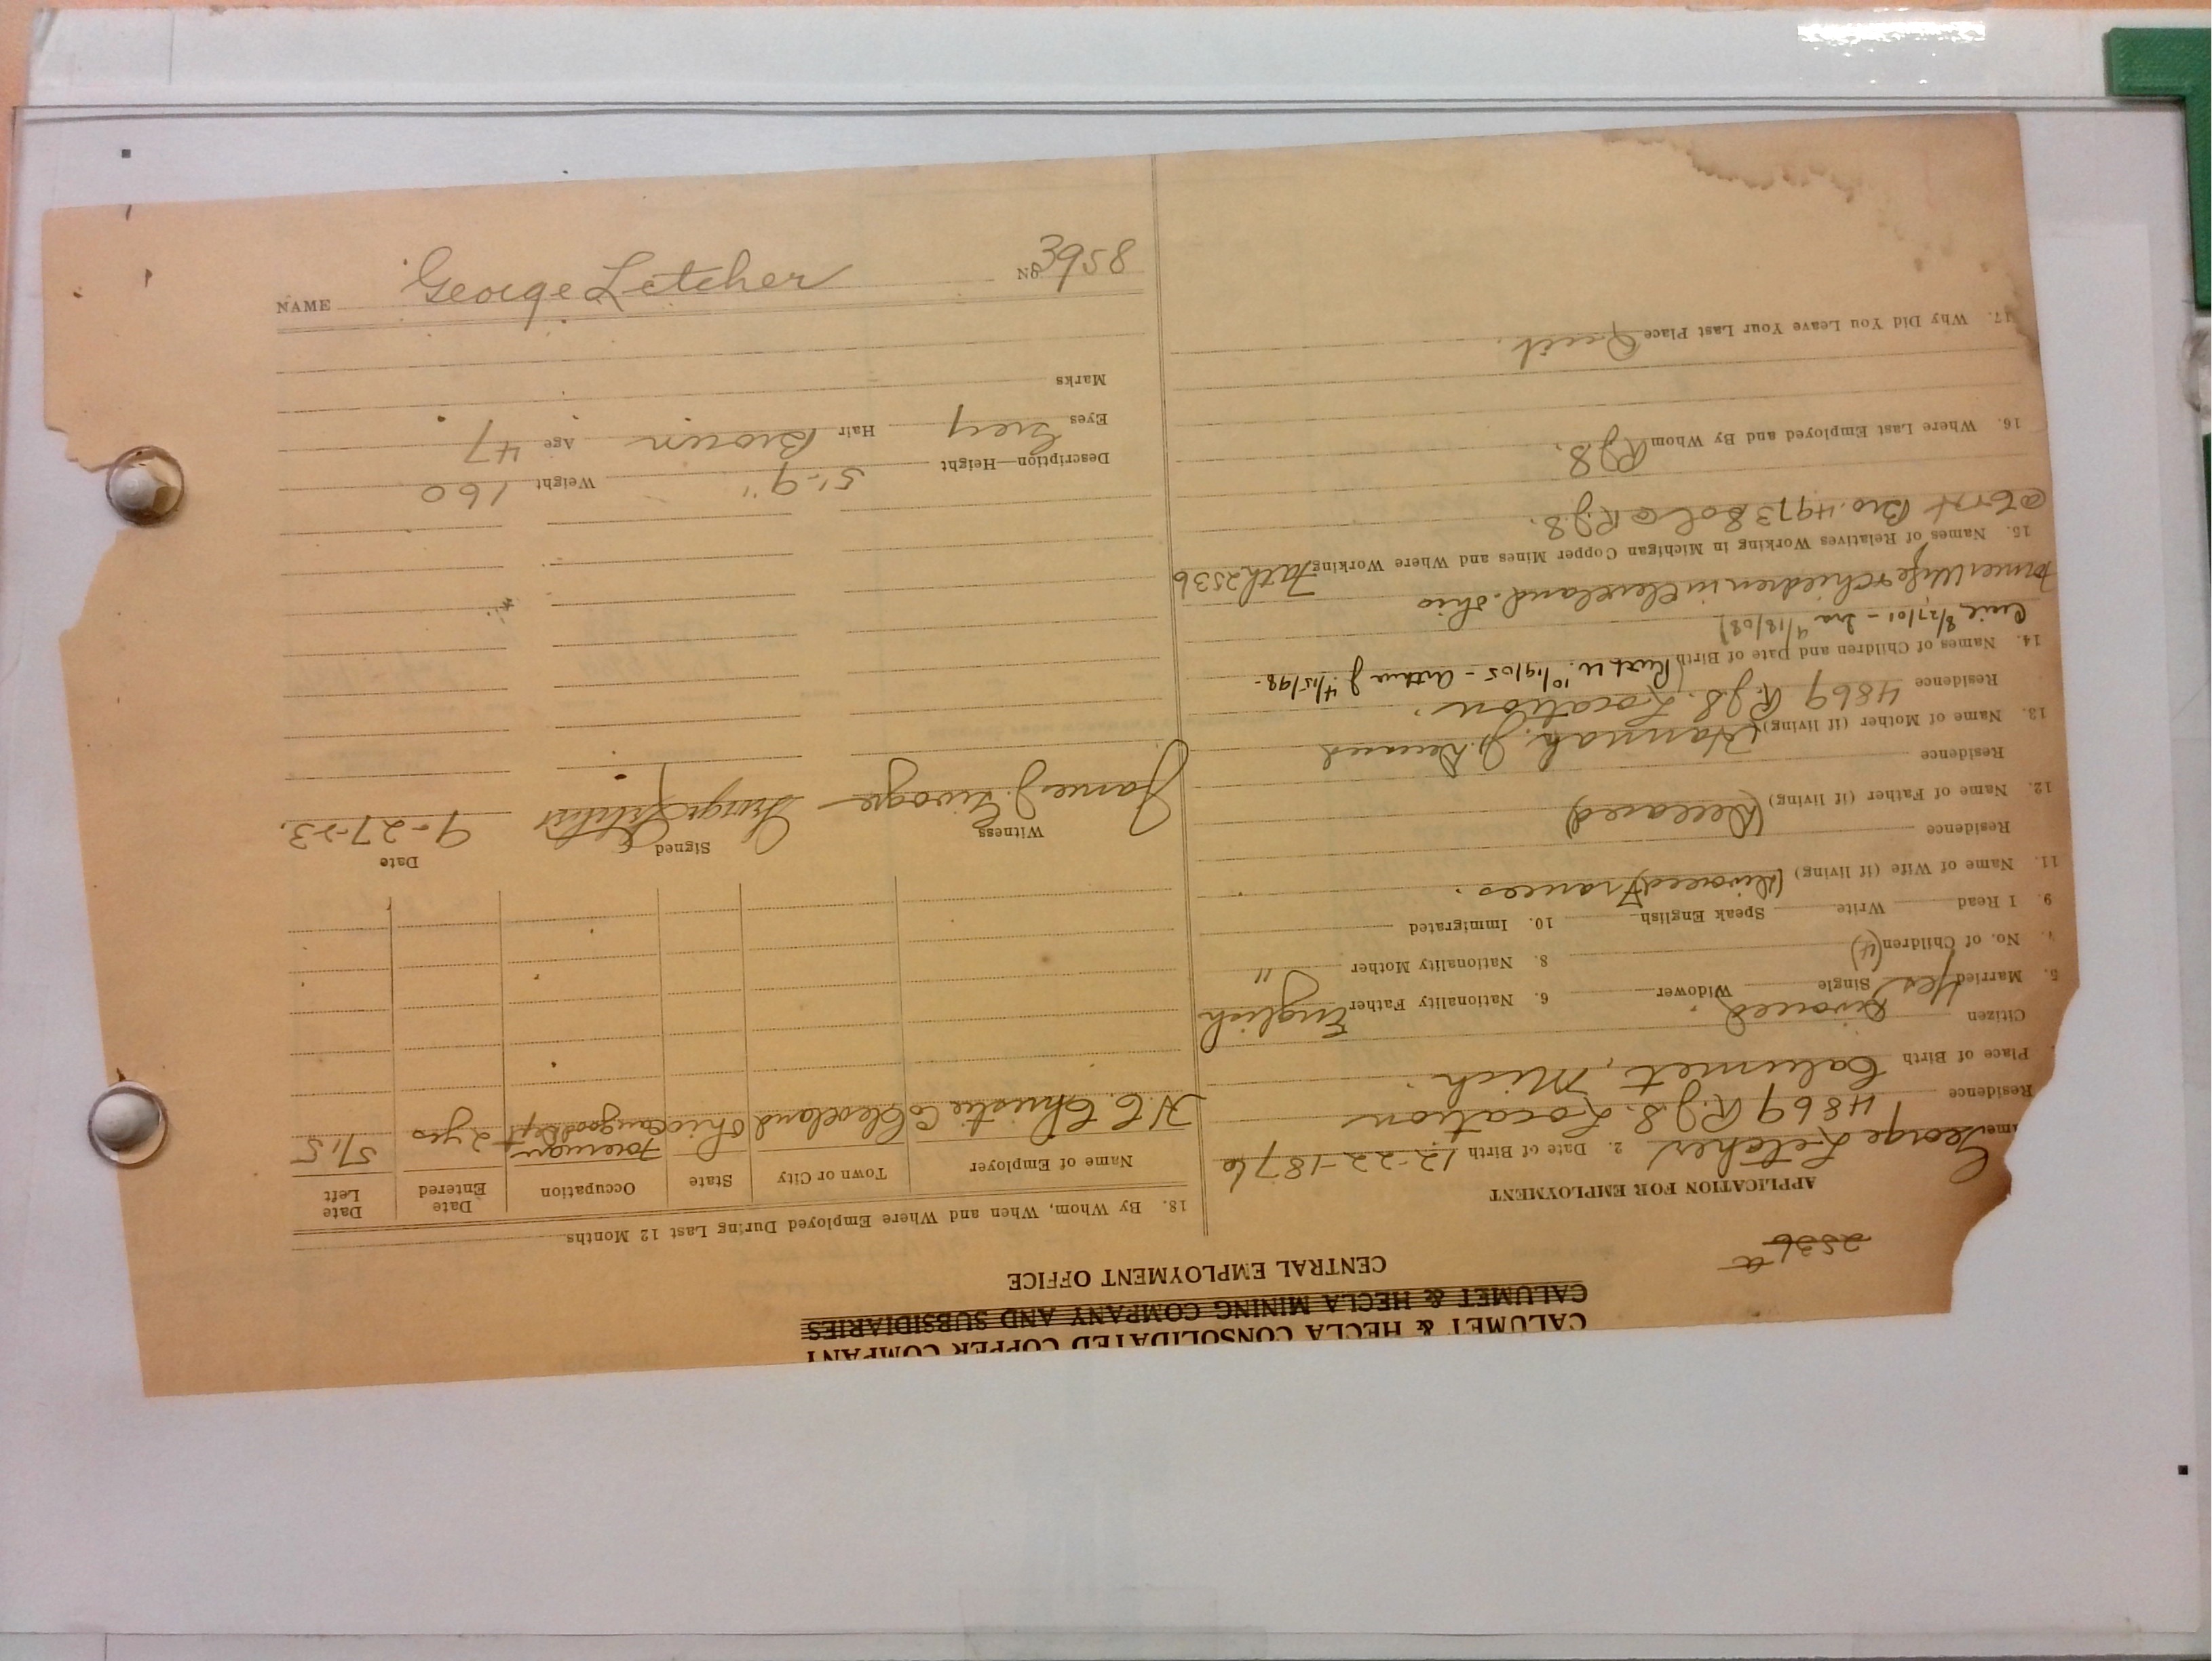 NAME George Letcher No. 3958
CALUMET & HECLA CONSOLIDATED COPPER COMPANY
CALUMET & HECLA MINING COMPANY AND SUBSIDIARIES
CENTRAL EMPLOYMENT OFFICE
2536 a
APPLICATION FOR EMPLOYMENT
ame George Letcher 2. Date of Birth 12-22-1876
Residence 4869 R.J.S. Location
Place of Birth Calumet, Mich.
Citizen Yes
Divorced
5. Married Single Widower 6. Nationality Father English
7. No. of Children (4) 8. Nationality Mother "
9. I Read Write Speak English 10. Immigrated
11. Name of Wife (if living) (Divorced) Frances.
Residence
12. Name of Father (if living) (Deceased)
Residence
13. Name of Mother (if living) (Hannah J. Deceased
Residence 4869 R.J.S. Location.
14. Names of Children and Date of Birth (Ruth W. 10/19/05 - Arthur J. 4/15/98 -
Cecil 8/27/01 - Ira 4/18/08)
former Wife & Children in Cleveland. Ohio
15. Names of Relatives Working in Michigan Copper Mines and Where Working Fath 2536
Bro. 4973 Bol @ R.J.S.
16. Where Last Employed and By Whom R.J.S.
17. Why Did You Leave Your Last Place Quit.
18. By Whom, When and Where Employed During Last 12 Months
Name of Employer Town or City State Occupation Date Entered Date Left
H.C. Christie Co Cleveland Ohio Foreman Dept 2 yrs 5/15
Witness Signed Date
James J. George Letcher 9-27-23.
Description—Height 5'-9" Weight 160
Eyes Grey Hair Brown Age 47
Marks